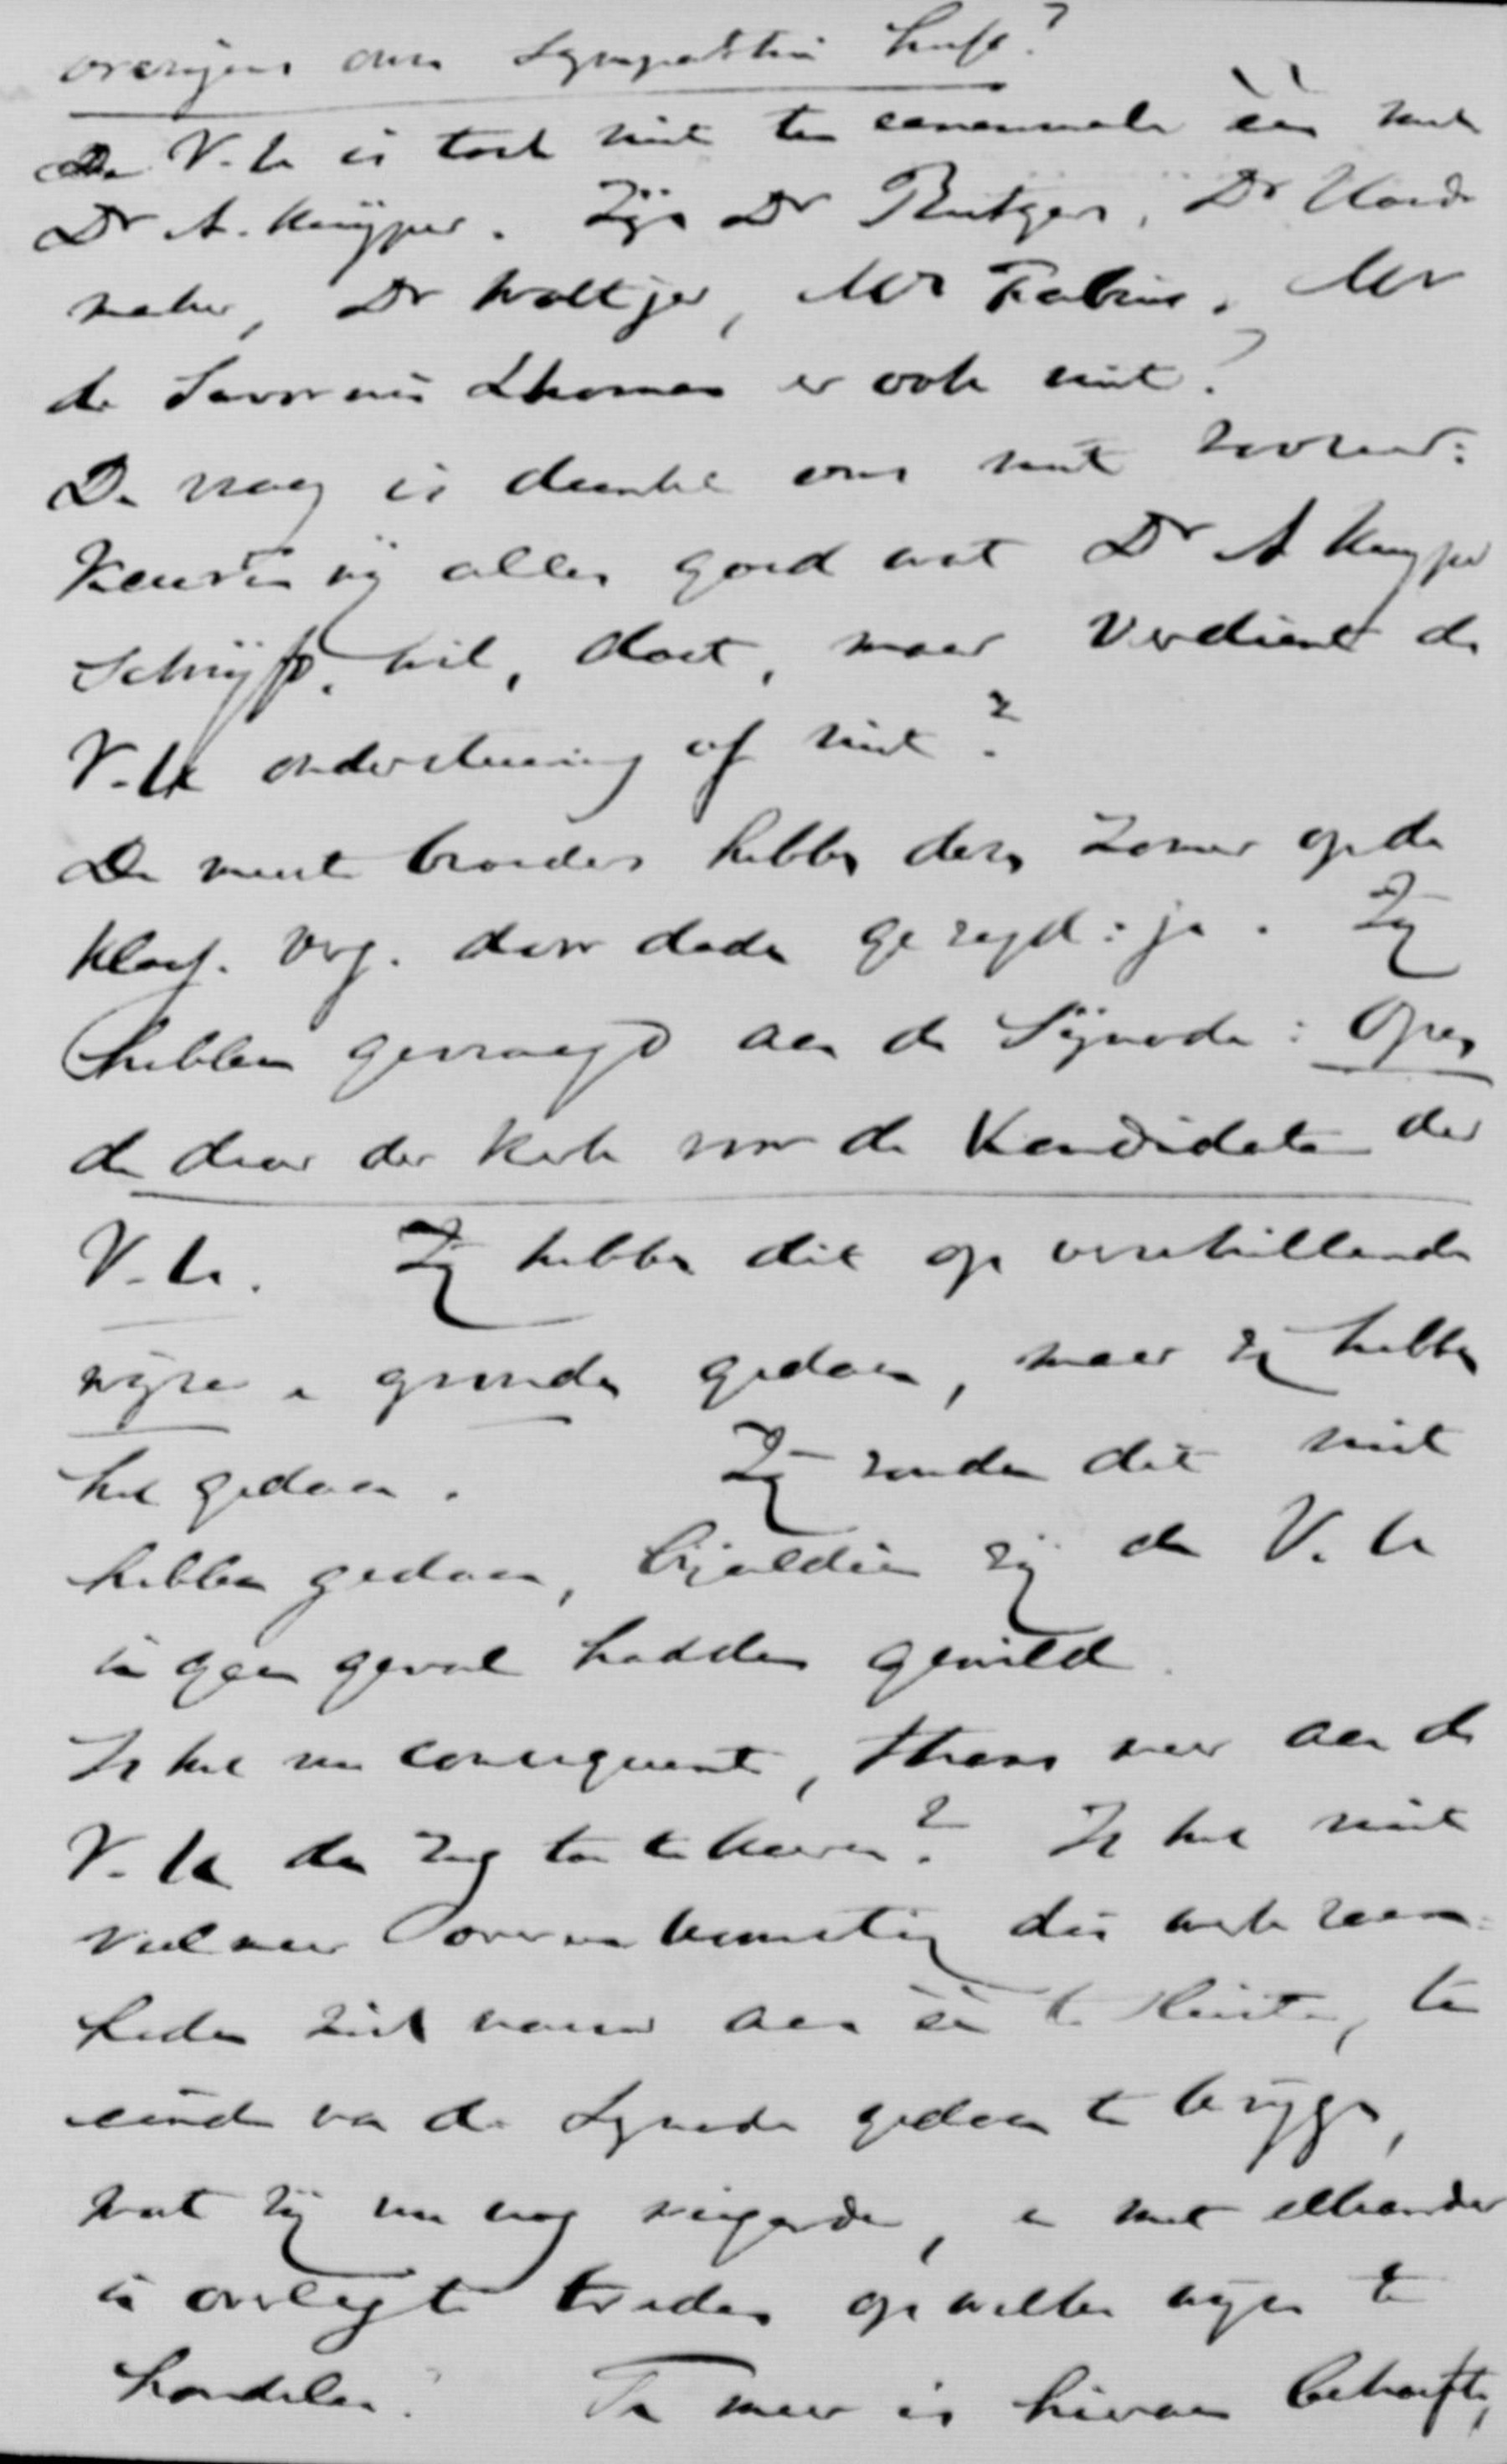 overigens onze Sympathie heeft?
De V.U. is toch niet ten eenenmale één met
Dr A. Kuyper. Zijn Dr Rutgers, Dr Hoede
maker, Dr Woltjer, Mr Fabius, Mr
de Savornin Lhoman er ook niet?
De vraag is dunkt ons niet zoozeer:
Keuren wij alles goed wat Dr A Kuyper
Schrijft, wil, doet, maar verdient de
V.U. ondersteuning of niet?
De meeste broeders hebben dezen zomer op de
Klass. Verg. door daden gezegd: ja. Zij
hebben gevraagd aan de Synode: Open
de deur der kerk voor de Kandidaten der
V.U. Zij hebben dit op verschillende
wijze en gronden gedaan, maar zij hebben
het gedaan. Zij zouden dit niet
hebben gedaan, bijaldien zij de V.U.
in geen geval hadden gewild.
Is het nu consequent, thans weer aan de
V.U. den rug toe te keeren? Is het niet
veelmeer overeenkomstig die werkzaam-
heden zich nauwer aan één te sluiten, ten
einde van de Synode gedaan te krijgen,
wat zij nu nog weigerde, en met elkander
in overleg te treden op welke wijze te
handelen? Te meer is hieraan behoefte,